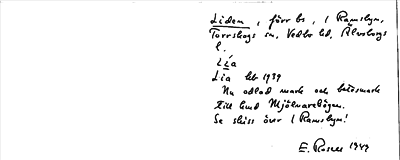 Liden, förr bs, i Ramsbyn,
Torrskogs sn, Vedbo hd, Älvsborgs
l.
Lia
Lia lbf 1939
Nu odlad mark och betesmark
till hmd Mjölnarebogen.
Se skiss över i Ramsbyn!
E. Rosell 1949